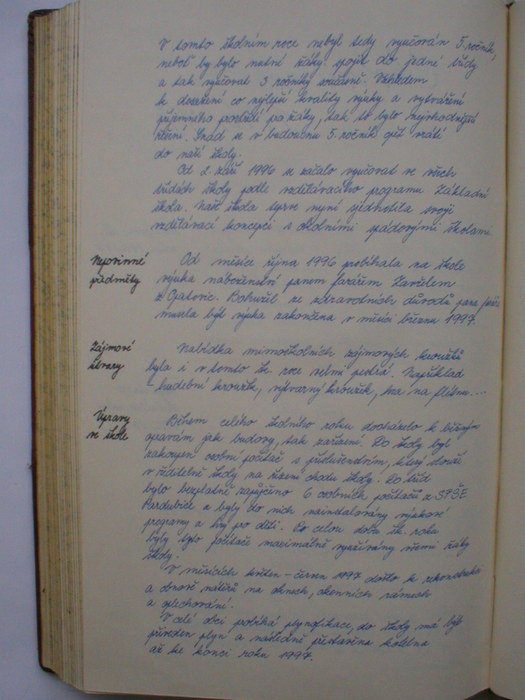 V tomto školním roce nebyl tedy vyučován 5. ročník,
neboť by bylo nutné žáky spojit do jedné třídy
a tak vyučovat 3 ročníky současně. Vzhledem
k dosažení co nejlepší kvality výuky a vytváření
příjemného prostředí pro žáky, tak to bylo nejvhodnější
řešení. Snad se v budoucnu 5. ročník opět vrátí
do naší školy.
Od 2. září 1996 se začalo vyučovat ve všech
třídách školy podle vzdělávacího programu Základní
škola. Naše škola teprve nyní sjednotila svoji
vzdělávací koncepci s okolními spádovými školami.
Nepovinné
předměty
Od měsíce října 1996 probíhala na škole
výuka náboženství panem farářem
z Opatovic. Bohužel ze zdravotních důvodů pana faráře
musela být výuka zakončena v měsíci březnu 1997.
Zájmové
útvary
Nabídka mimoškolních zájmových kroužků
byla i v tomto šk. roce velmi pestrá. Například
hudební kroužek, výtvarný kroužek, hra na flétnu...
Úpravy
ve škole
Během celého školního roku docházelo k běžným
opravám jak budovy, tak zařízení. Do školy byl
zakoupen osobní počítač s příslušenstvím, který slouží
v ředitelně školy na řízení chodu školy. Do tříd
bylo bezplatně zapůjčeno 6 osobních počítačů z SPŠE
Pardubice a byly do nich nainstalovány výukové
programy a hry pro děti. Po celou dobu šk. roku
byly tyto počítače maximálně využívány všemi žáky
školy.
V měsících květen - červen 1997 došlo k rekonstrukci
a obnově nátěrů na oknech, okenních rámech
a oplechování.
V celé obci probíhá plynofikace, do školy má být
přiveden plyn a následně přestavěna kotelna
až ke konci roku 1997.